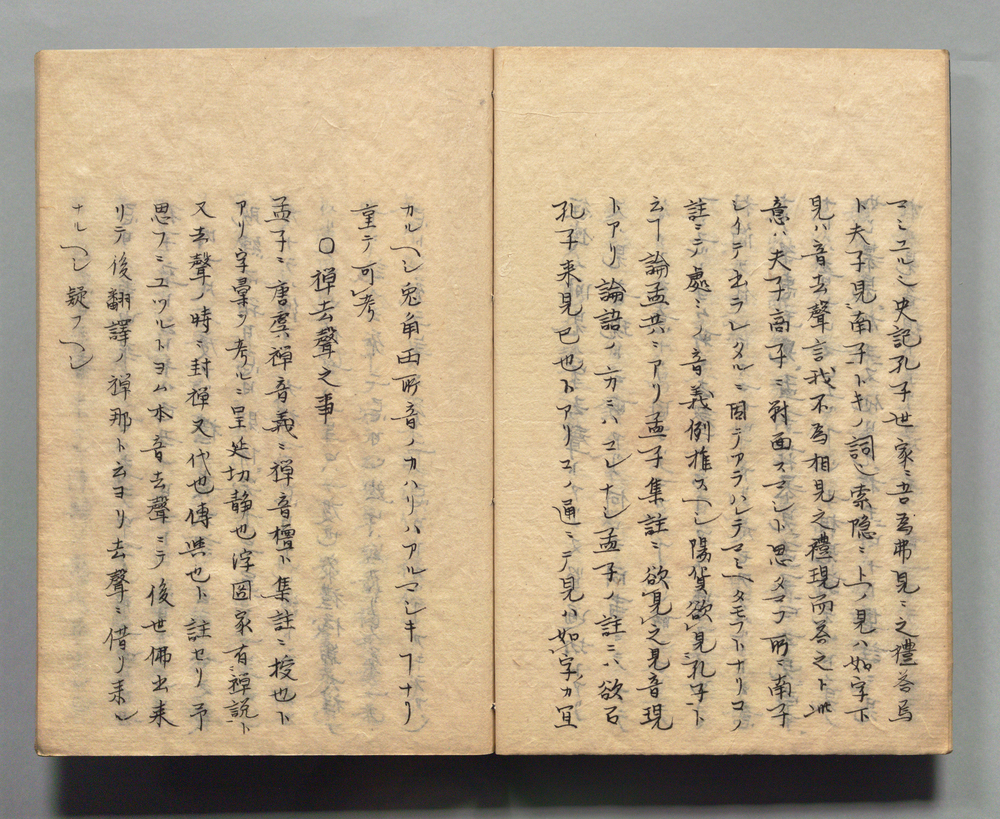 マミユルと史記孔子世家ニ吾爲弗見ニ之禮答爲
ト夫子見南子トキノ詞也索隠ニ上ノ見ハ如字下
見ハ音去聲言我不爲相見之禮現而答之ト此
意ハ夫子南子ニ對面スマシト思タマフ所ニ南子
シイテ玉ヲレタルニ因テアラハレテマミヘタモフトナリコノ
註ニテ處ニ音義例推スヘシ陽貨欲見孔子ト
云ヿ論孟共ニアリ孟子集註ニ欲見之見音現
トアリ論語ノ方ニハコレナシ孟子ノ註ニハ欲召
孔子来見已也トアリコノ通ニテ見ハ如字カ宜
カルヘシ兎角由所音ノカハリハアルマシキヿナリ
重テ可考
〇禅去聲之事
孟子ニ唐虞禅音義ニ禅音檀ト集註ニ授也ト
アリ字彙ヲ考ルニ呈延切静也浮圖家有禅説ト
又去聲ノ時ニ封禅又代也傳與也ト註セリ予
思フニユツルトヨム本音去聲ニテ後世佛出来
リテ後翻譯ノ禅那ト云ヨリ去聲ニ借リ来レ
ナルヘシ疑フヘシ